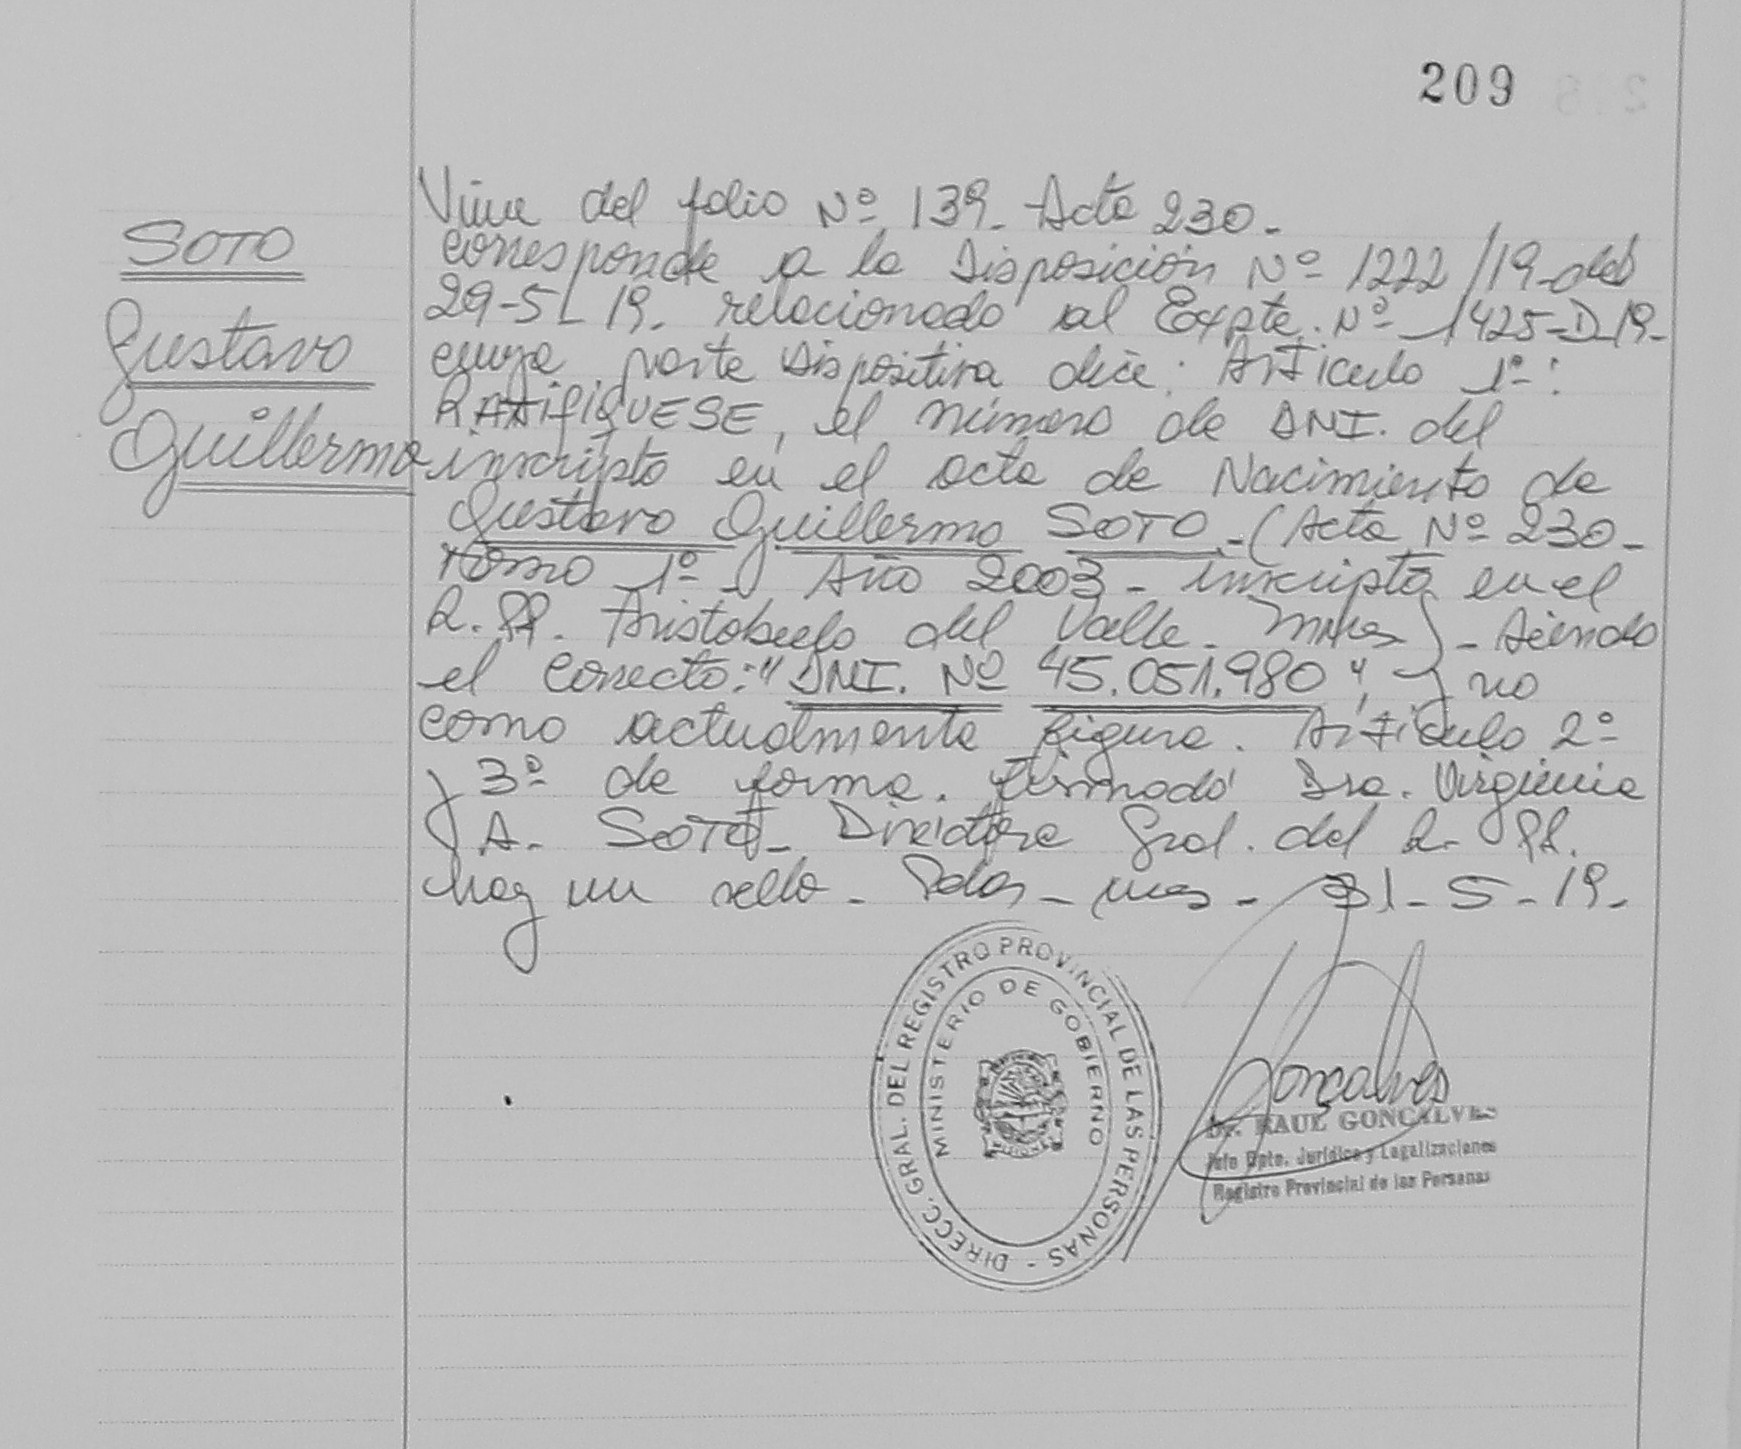 209
SOTO
Gustavo
Guillermo
Viene del folio Nº 139. Acta 230.
corresponde a la Disposición Nº 1222/19 del
29-5-19. relacionado al Expte. Nº 1425-D-19-
cuya parte Dispositiva dice: Artículo 1º:
RATIFIQUESE, el número de DNI. del
inscripto en el acta de Nacimiento de
Gustavo Guillermo SOTO - (Acta Nº 230-
Tomo 1º - Año 2003 - inscripta en el
R. PP. Aristobulo del Valle - Mnes) - siendo
el correcto: "DNI. Nº 45.051.980", y no
como actualmente figura. Artículo 2º
y 3º de forma. firmado Dra. Virginia
A. SOTO - Directora Gral. del R. PP.
hay un sello - Pdas - mnes - 31-5-19.
DIRECC. GRAL. DEL REGISTRO PROVINCIAL DE LAS PERSONAS -
MINISTERIO DE GOBIERNO
MISIONES
Gonçalves
Dr. RAUL GONCALVES
Jefe Dpto. Jurídico y Legalizaciones
Registro Provincial de las Personas